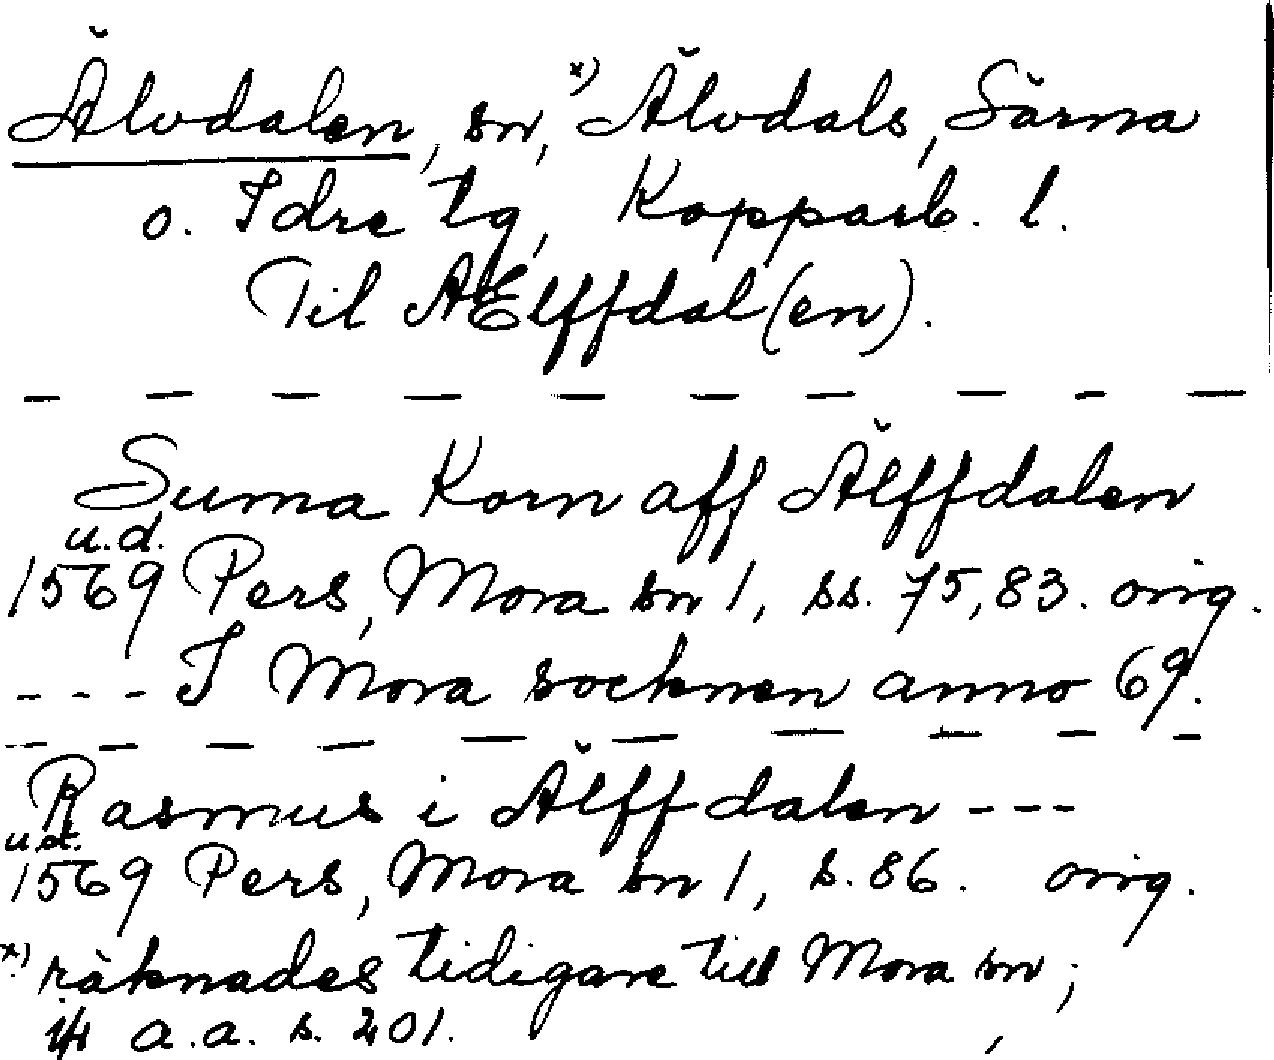 Älvdalen, sn, x) Älvdals, Särna
o. Idre tg, Kopparb. l.
Til AElffdal(en).
Suma Korn aff Älffdalen
u.d.
1569 Pers, Mora sn 1, ss. 75, 83. orig.
--- I Mora socknen anno 69.
Rasmus i Älffdalen ---
u.d.
1569 Pers, Mora sn 1, s. 86. orig.
x) räknades tidigare till Mora sn;
a.a. s. 201.